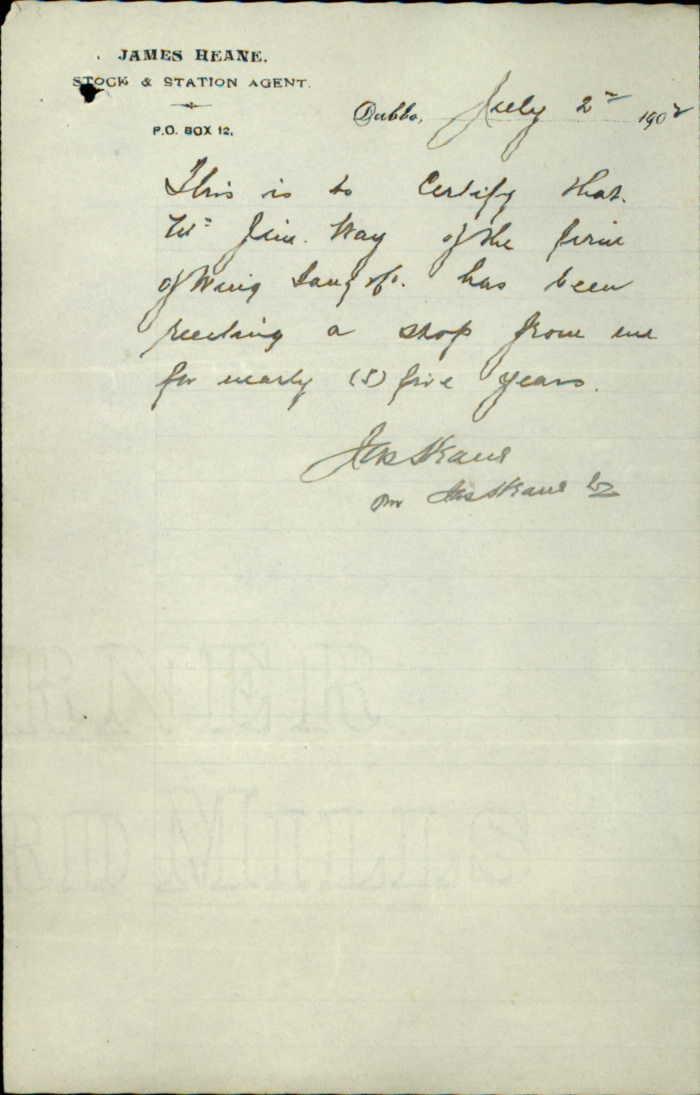 JAMES HEANE.
STOCK & STATION AGENT.
P.O. BOX 12.
Dubbo, July 2nd 1902
This is to Certify that
Mr Jim Way of the firm
of Wing Sang & Co. has been
renting a shop from me
for nearly (5) five years.
Jas Heane
per Jas Heane